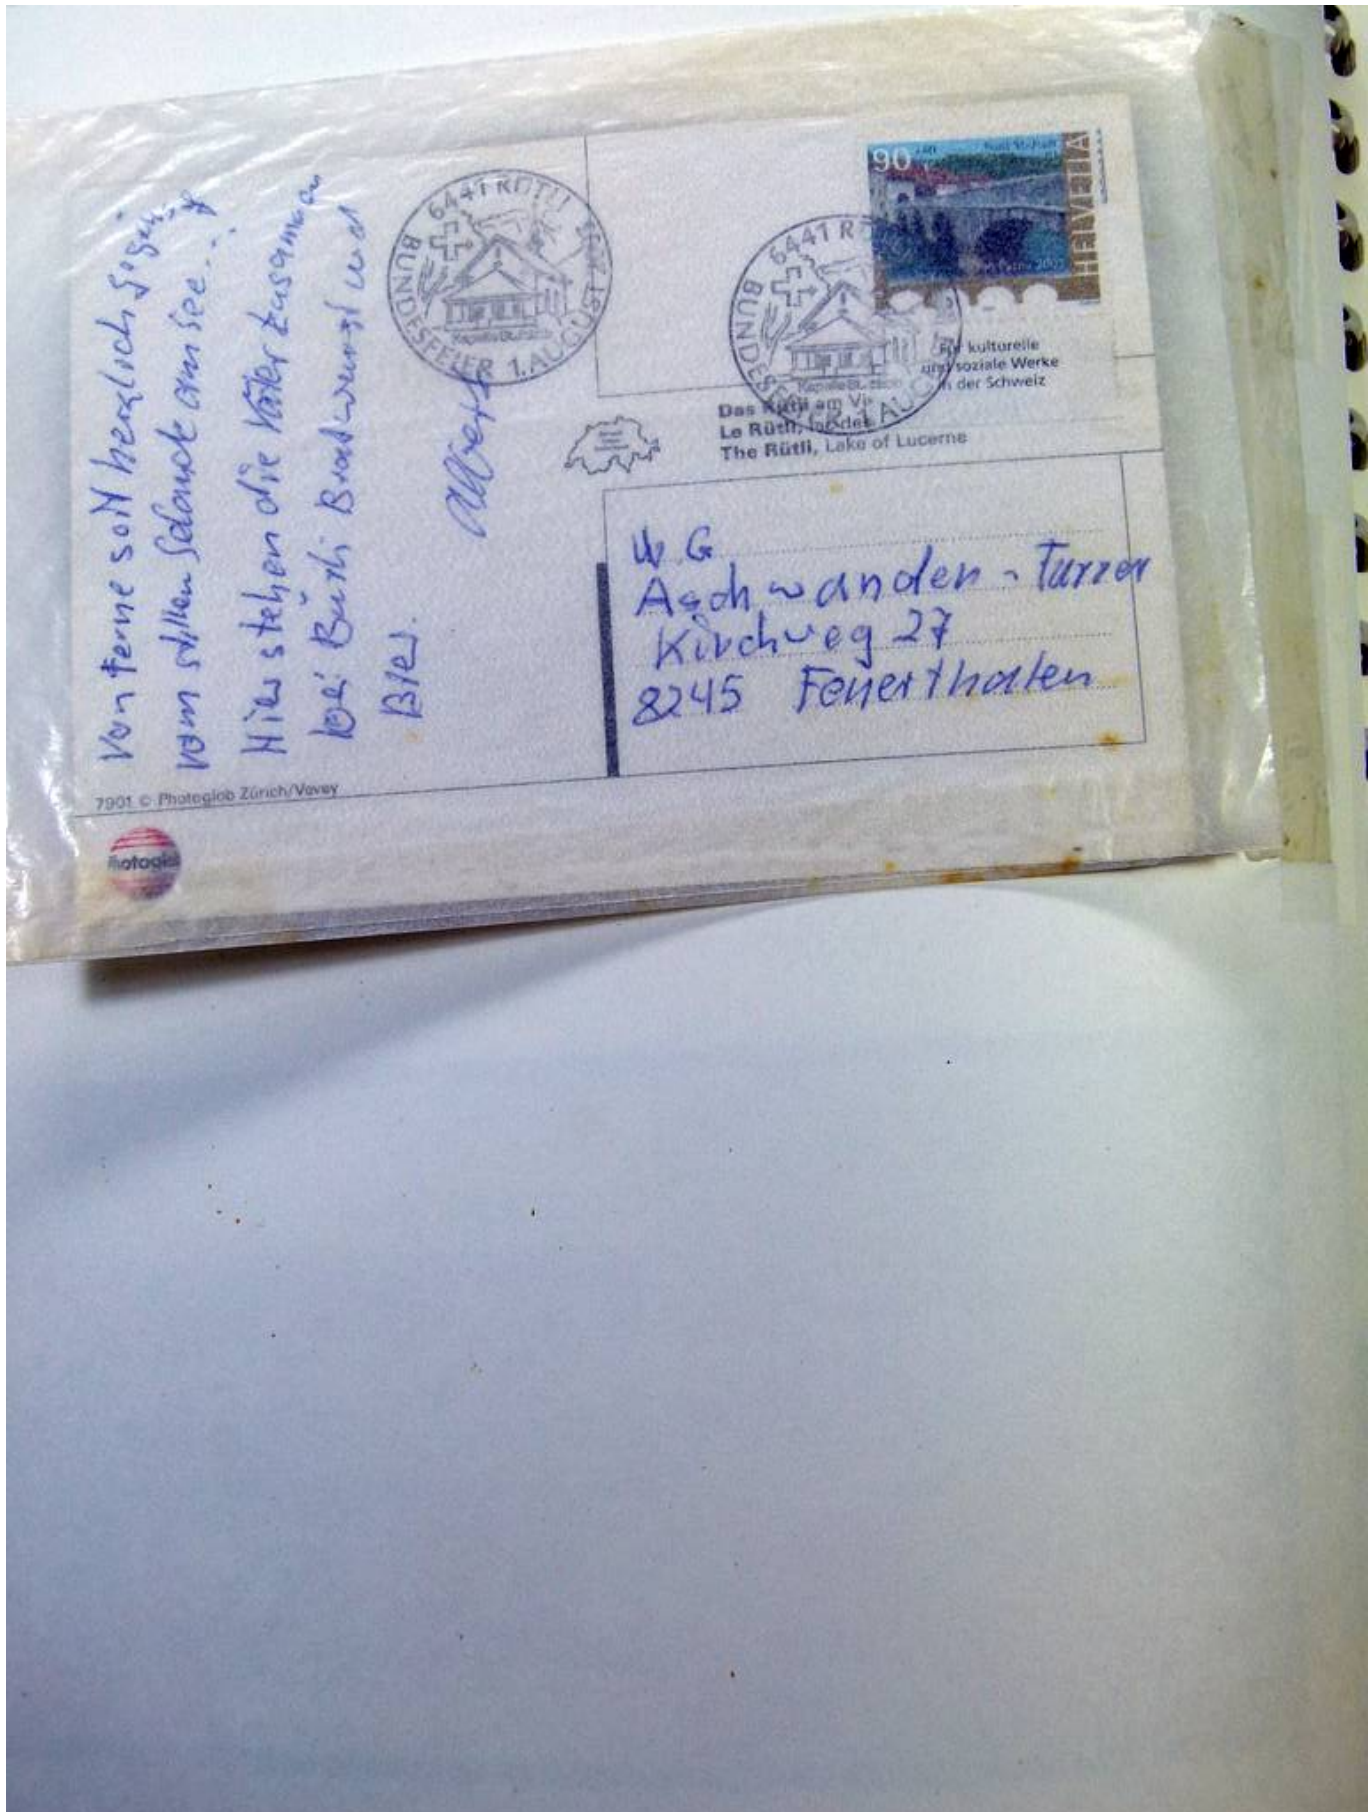 Von ferne soll herzlich gegrüsst
vom stillen Gelände am See...
Hier stehen die Väter zusammen
bei Bürli Bratwurst und
Bier.
Albert
6441 RÜTLI
BUNDESFEIER 1. AUGUST
90
HELVETIA
6441 R
BUNDESFEIER 1. AUG
Für kulturelle
und soziale Werke
in der Schweiz
Das Rütli am
Le Rütli,
The Rütli, Lake of Lucerne
W G
Aschwanden - Furrer
Kirchweg 27
8245 Feuerthalen
7901 © Photoglob Zürich/Vevey
Photoglob